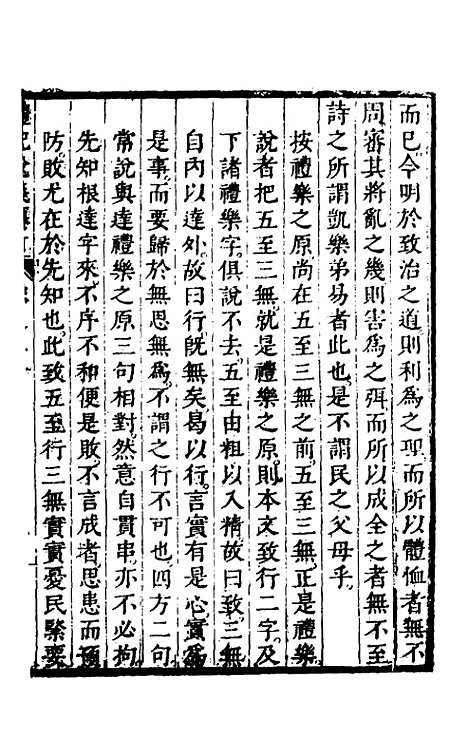 而已今明於致治之道則利爲之理而所以體恤者無不
周審其將亂之幾則害爲之弭而所以成全之者無不至
詩之所謂凱樂弟易者此也是不謂民之父母乎
按禮樂之原尚在五至三無之前五至三無正是禮樂
說者把五至三無就是禮樂之原則本文致行二字及
下諸禮樂字俱說不去五至由粗以入精故曰致三無
自內以達外故曰行旣無矣曷以行言實有是心實爲
是事而要歸於無思無爲不謂之行不可也四方二句
常說與達禮樂之原三句相對然意自貫串亦不必拘
先知根達字來不序不和便是敗不言成者思患而預
防敗尤在於先知也此致五至行三無實實憂民緊要